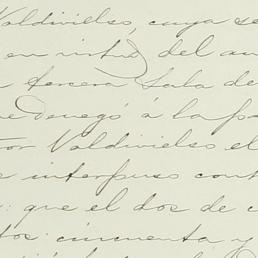 Valdivielso, cuya se
en virtud del au
tercera Sala de
denegó á la pa
Valdivielso el
interpuso cont
que el dos de
cincuenta y